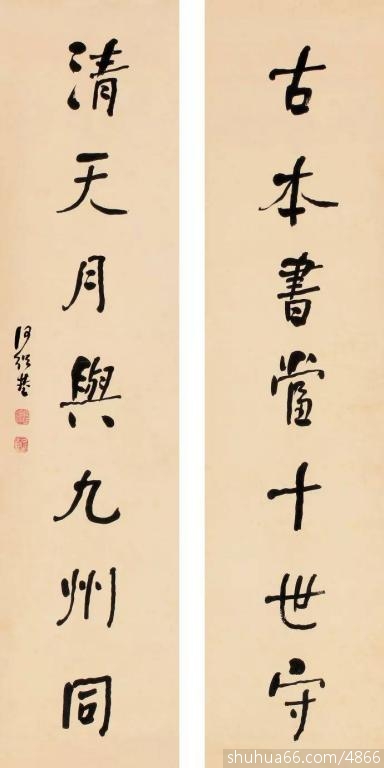 古本書當十世守
清天月與九州同
何紹基
shuhua66.com/4866